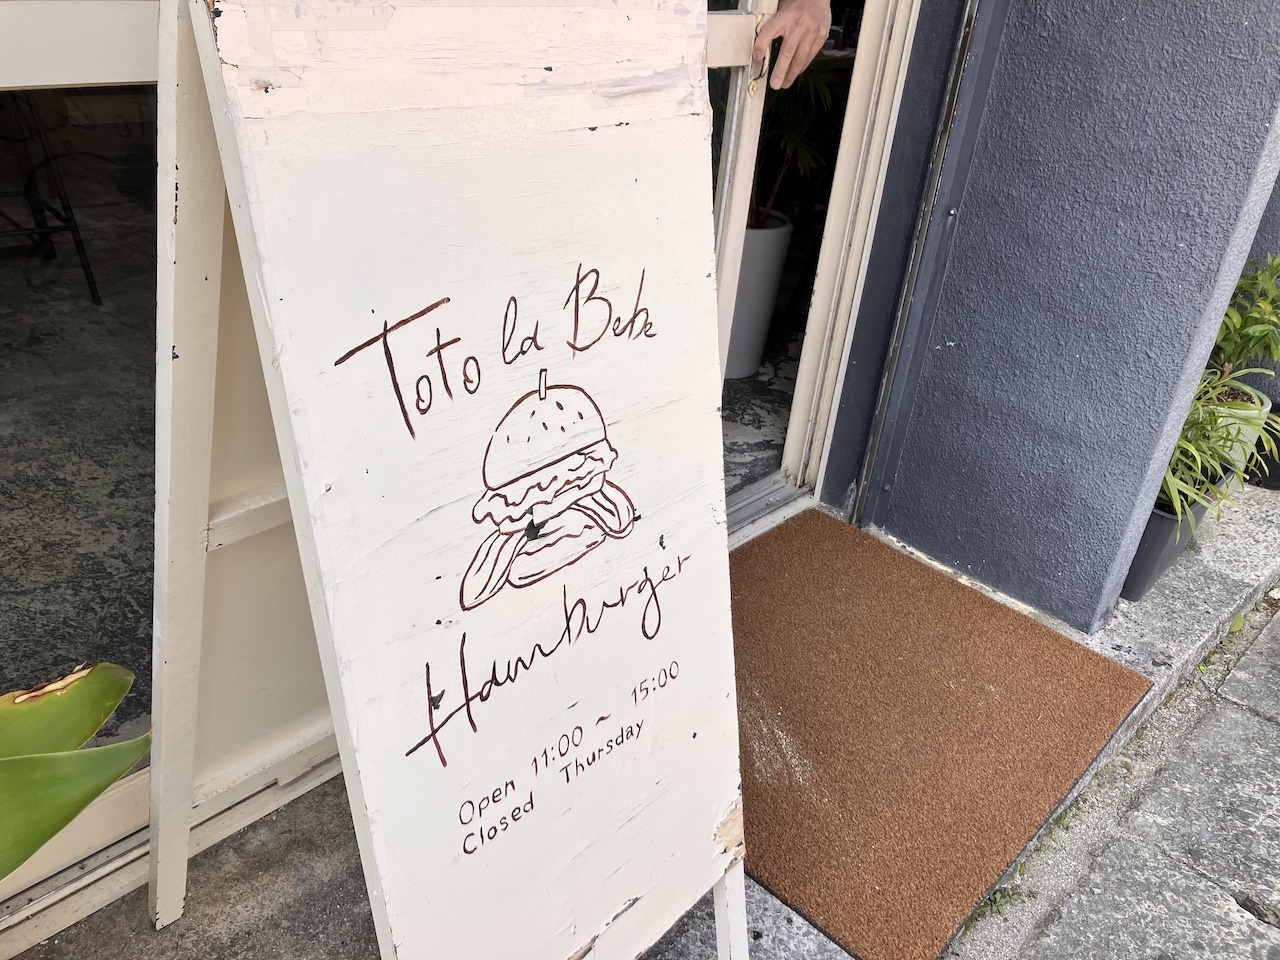 Toto la Bebe
Hamburger
Open 11:00 ~ 15:00
Closed Thursday